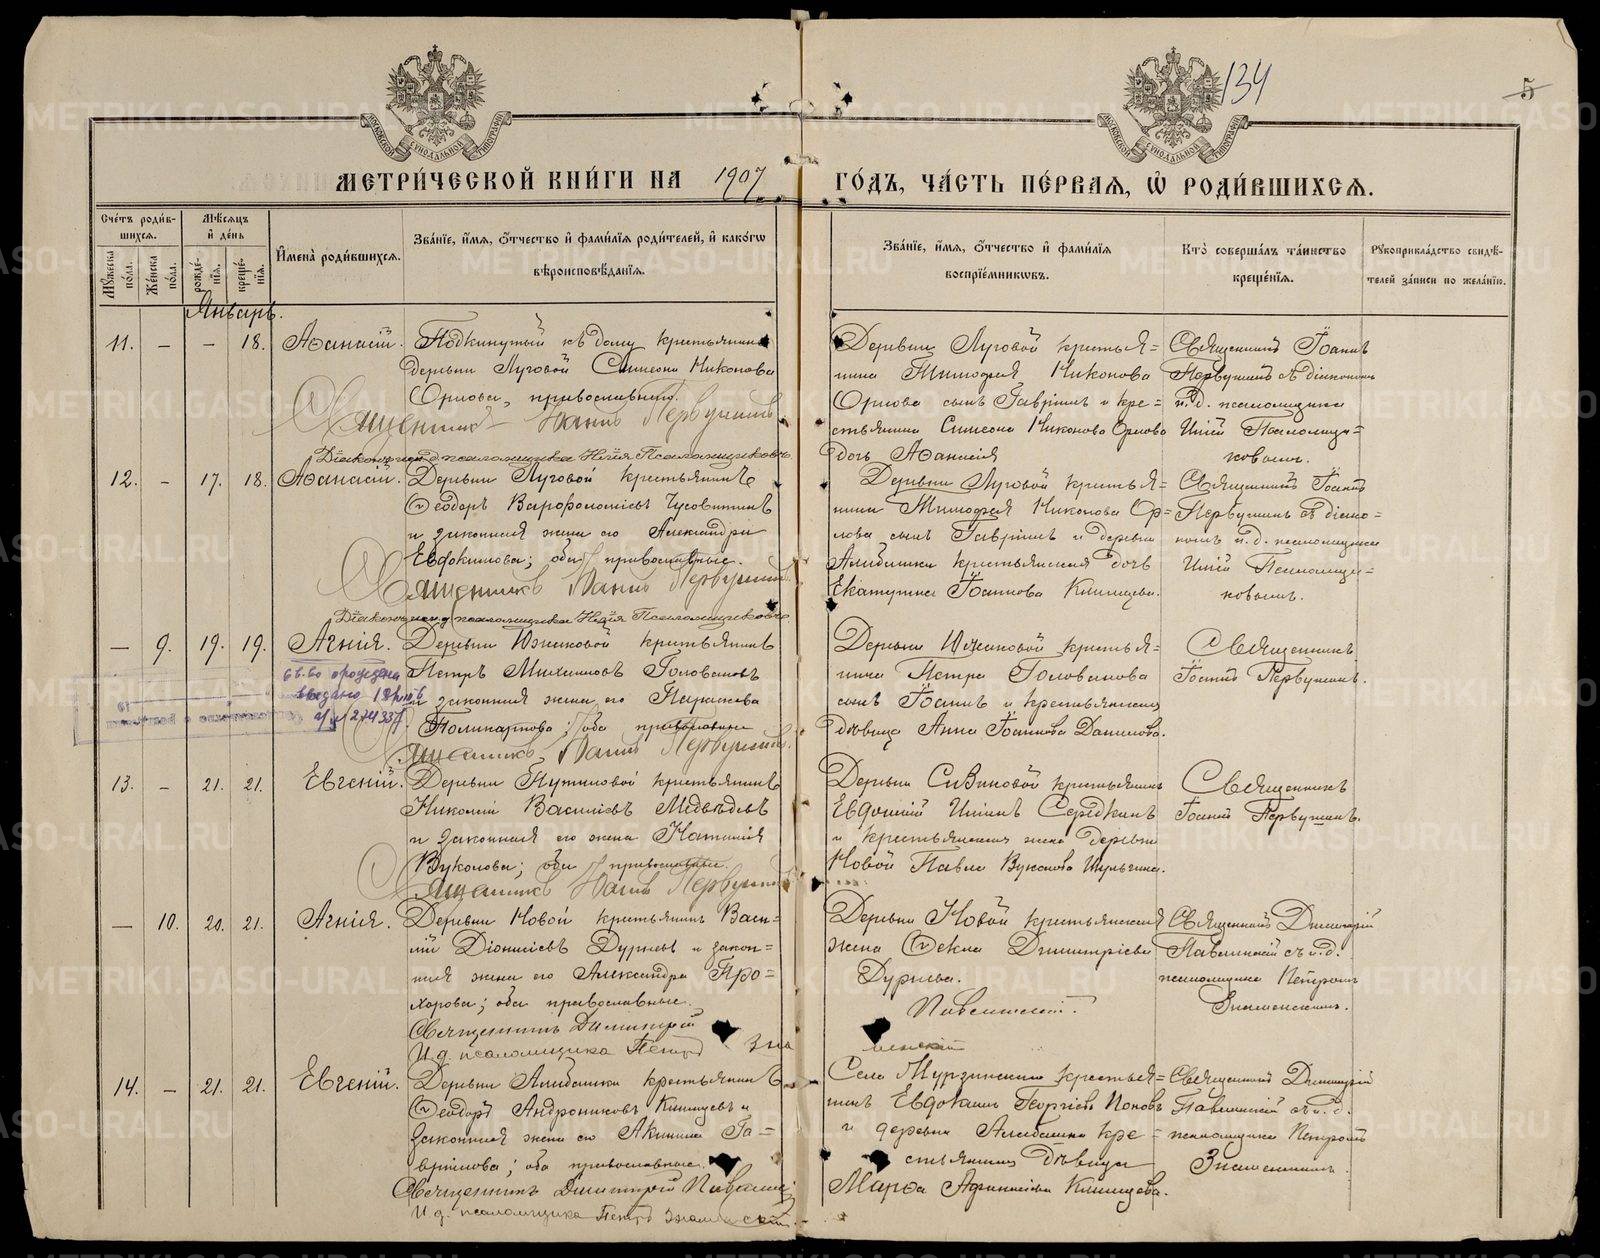 134
5
МОСКОВСКОЙ СѴНОДАЛЬНОЙ ТИПОГРАФІИ
МОСКОВСКОЙ СѴНОДАЛЬНОЙ ТИПОГРАФІИ
МЕТРИ́ЧЕСКОЙ КНИ́ГИ НА 1907 ГО́ДЪ, ЧА́СТЬ ПЕ́РВАЯ, Ѡ҆ РОДИ́ВШИХСЯ.
Сче́тъ роди́в-
шихся.
Мѣ́сяцъ
и҆ де́нь
Му́жеска по́ла.
Же́нска по́ла.
рожде́-нїя.
креще́-нїя.
И҆мена̀ роди́вшихся.
Зва́нїе, и҆́мя, ѻ҆́тчество и҆ фами́лїя роди́телей, и҆ како́гѡ
вѣроисповѣ́данїя.
Зва́нїе, и҆́мя, ѻ҆́тчество и҆ фами́лїя
воспрїе́мникѡвъ.
Кто̀ соверша́лъ та́инство
креще́нїя.
Рꙋкоприкла́дство свидѣ́-
телей за́писи по жела́нїю.
Январь.
11. — — 18. Аѳанасій. Подкинутый къ дому крестьянина
деревни Луговой Симеона Никонова
Орлова, православный.
Священник Іоанн Первушин
Діаконъ и.д. псаломщика Илія Псаломщиковъ
Деревни Луговой крестья=
нина Тимофея Никонова
Орлова сынъ Гавріилъ и кре=
стьянина Симеона Никонова Орлова
дочь Аѳанасія
Священникъ Іоаннъ
Первушинъ съ діакономъ
и.д. псаломщика
Иліей Псаломщи=
ковымъ.
12. — 17. 18. Аѳанасій. Деревни Луговой крестьянинъ
Ѳеодоръ Варѳоломеевъ Чусовитинъ
и законная жена его Александра
Евдокимова; оба православные.
Священникъ Іоаннъ Первушинъ
Діаконъ и.д. псаломщика Илія Псаломщиковъ
Деревни Луговой крестья=
нина Тимофея Никонова Ор=
лова сынъ Гавріилъ и деревни
Алабашки крестьянская дочь
Екатерина Іоаннова Клищева.
Священникъ Іоаннъ
Первушинъ съ діако=
номъ и.д. псаломщика
Иліей Псаломщи=
ковымъ.
— 9. 19. 19. Агнія. Деревни Южаковой крестьянинъ
Петръ Михаиловъ Головановъ
и законная жена его Параскева
Поликарпова; оба православные
Священникъ Іоаннъ Первушинъ.
св-во о рождении
выдано
Деревни Южаковой крестья=
нина Петра Голованова
сынъ Іоаннъ и крестьянская
дѣвица Анна Іоаннова Данилова.
Священникъ
Іоаннъ Первушинъ.
13. — 21. 21. Евгеній. Деревни Путиловой крестьянинъ
Николай Васильевъ Медвѣдевъ
и законная его жена Наталія
Вуколова; оба православные.
Священникъ Іоаннъ Первушинъ
Деревни Сизиковой крестьянинъ
Серебкинъ
и крестьянская жена деревни
Новой Павла Вуколова
Священникъ
Іоаннъ Первушинъ.
— 10. 20. 21. Агнія. Деревни Новой крестьянинъ Васи=
лій Діонисіевъ Дурневъ и закон=
ная жена его Александра Про=
хорова; оба православные.
Священникъ Димитрій
И.д. псаломщика Петръ Зна
Деревни Новой крестьянская
жена Ѳекла Димитріева
Дурнева.
Павлинскій.
менскій
Священникъ Димитрій
Павлинскій съ и.д.
псаломщика Петромъ
Знаменскимъ.
14. — 21. 21. Евгеній. Деревни Алабашки крестьянинъ
Ѳеодоръ Андрониковъ Клищевъ и
законная жена его Акилина Га=
вріилова; оба православные.
Священникъ Димитрій Павлинскій
И.д. псаломщика Петръ Знаменскій.
Села Мурзинскаго крестья=
нинъ Евдокимъ Георгіевъ Поповъ
и деревни Алабашки кре=
стьянская дѣвица
Марѳа Аѳанасіева Клищева.
Священникъ Димитрій
Павлинскій съ и.д.
псаломщика Петромъ
Знаменскимъ.
METRIKI.GASO-URAL.RU